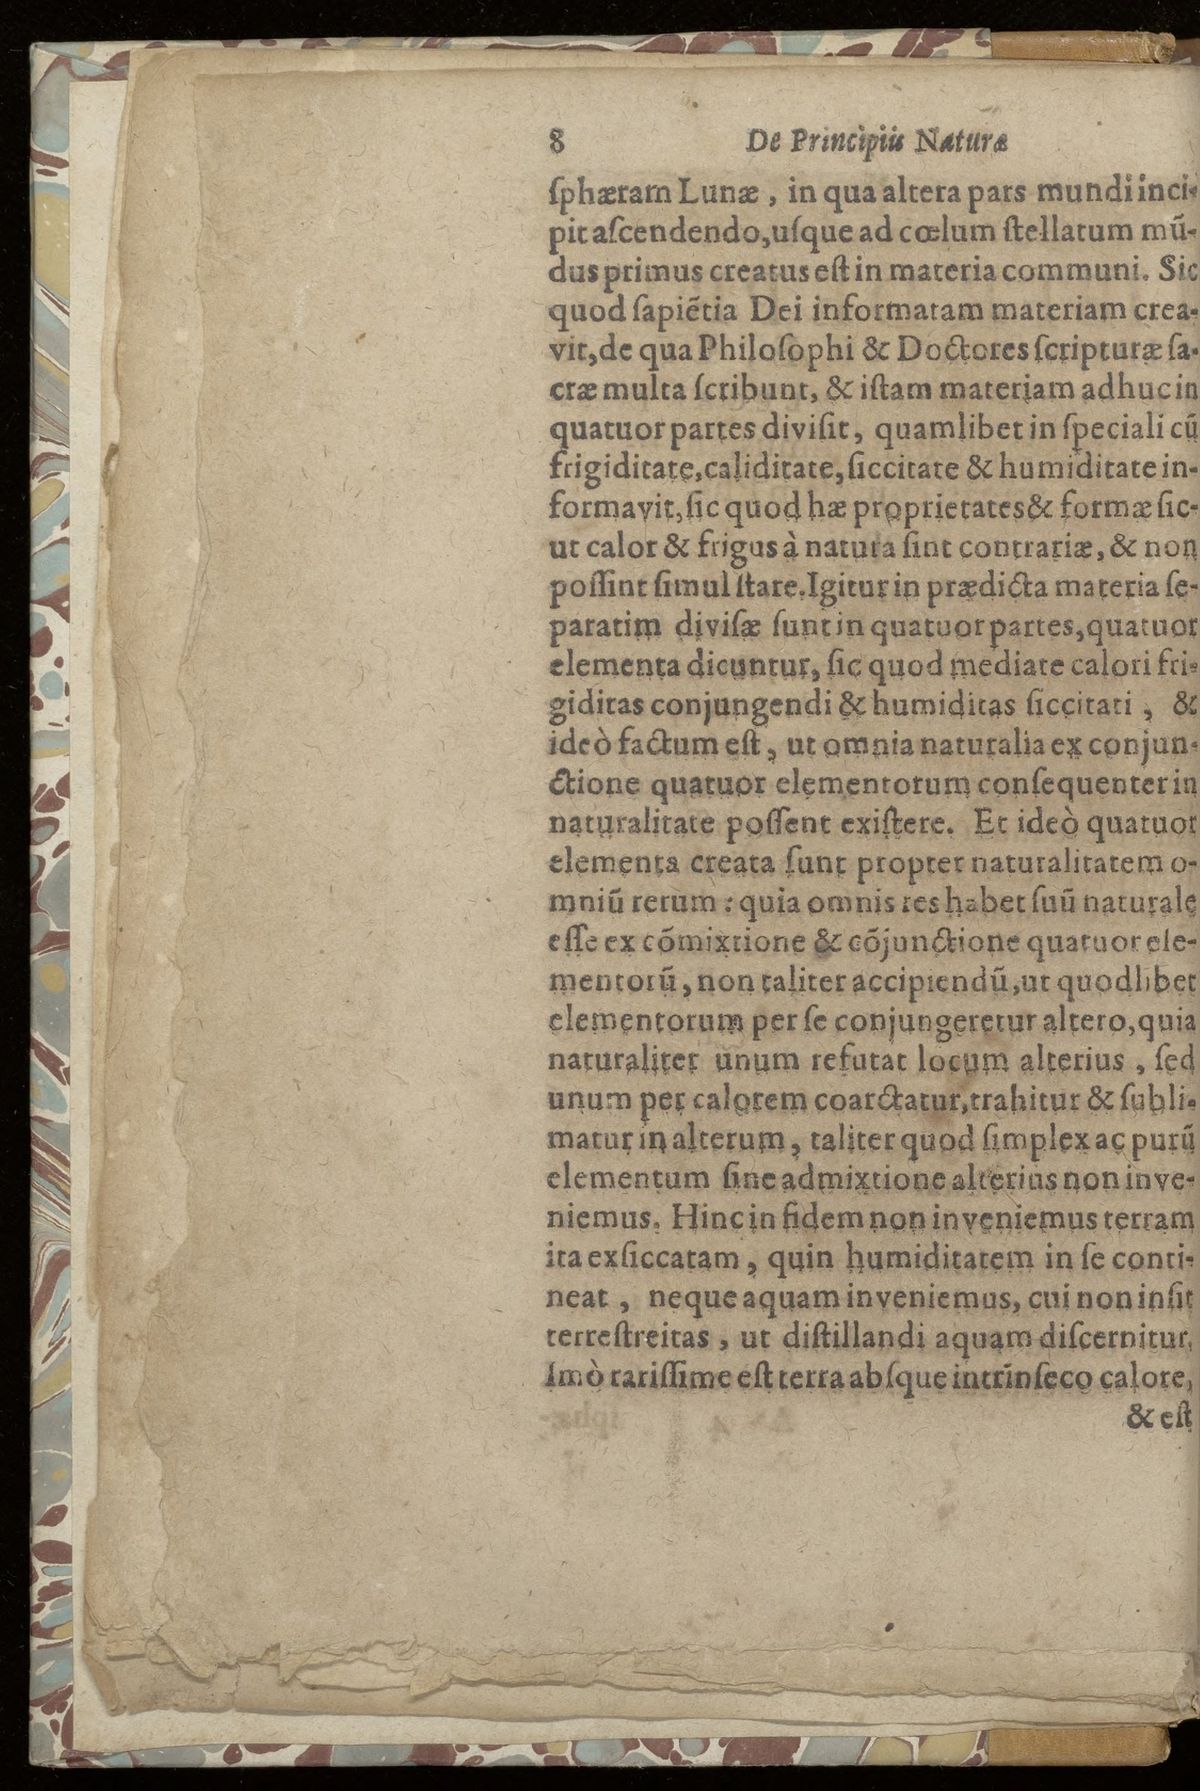 8 De Principiis Naturæ
ſphæram Lunæ, in qua altera pars mundi inci-
pit aſcendendo, uſque ad cœlum ſtellatum mũ-
dus primus creatus eſt in materia communi. Sic
quod ſapiẽtia Dei informatam materiam crea-
vit, de qua Philoſophi & Doctores ſcripturæ ſa-
cræ multa ſcribunt, & iſtam materiam adhuc in
quatuor partes diviſit, quamlibet in ſpeciali cũ
frigiditate, caliditate, ſiccitate & humiditate in-
formavit, ſic quod hæ proprietates & formæ ſic-
ut calor & frigus à natura ſint contrariæ, & non
poſſint ſimul ſtare. Igitur in prædicta materia ſe-
paratim diviſæ ſunt in quatuor partes, quatuor
elementa dicuntur, ſic quod mediate calori fri-
giditas conjungendi & humiditas ſiccitati, &
ideò factum eſt, ut omnia naturalia ex conjun-
ctione quatuor elementorum conſequenter in
naturalitate poſſent exiſtere. Et ideò quatuor
elementa creata ſunt propter naturalitatem o-
mniũ rerum: quia omnis res habet ſuũ naturale
eſſe ex cõmixtione & cõjunctione quatuor ele-
mentorũ, non taliter accipiendũ, ut quodlibet
elementorum per ſe conjungeretur altero, quia
naturaliter unum refutat locum alterius, ſed
unum per calorem coarctatur, trahitur & ſubli-
matur in alterum, taliter quod ſimplex ac purũ
elementum ſine admixtione alterius non inve-
niemus. Hinc in fidem non inveniemus terram
ita exſiccatam, quin humiditatem in ſe conti-
neat, neque aquam inveniemus, cui non inſit
terreſtreitas, ut diſtillandi aquam diſcernitur.
Imò rariſſime eſt terra abſque intrinſeco calore,
& eſt